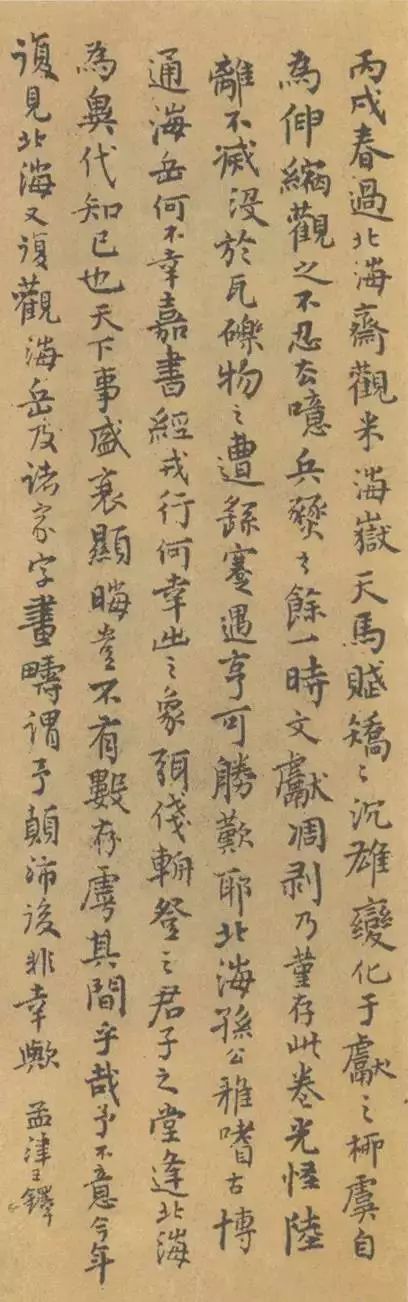 丙戌春過北海齋觀米海嶽天馬賦矯之沉雄變化于獻之柳虞自
為伸縮觀之不忍去噫兵燹之餘一時文獻凋剥乃菫存此卷光怪陸
離不滅沒於瓦礫物之遭繇蹇遇亨可勝歎耶北海孫公雅嗜古博
通海岳何不幸嘉書經戎行何幸出之象弭倭輈登之君子之堂逢北海
為異代知已也天下事盛衰顯晦豈不有數存虖其間乎哉予不意今年
復見北海又復觀海岳及諸家字畫疇謂予顛沛後非幸歟 孟津王鐸